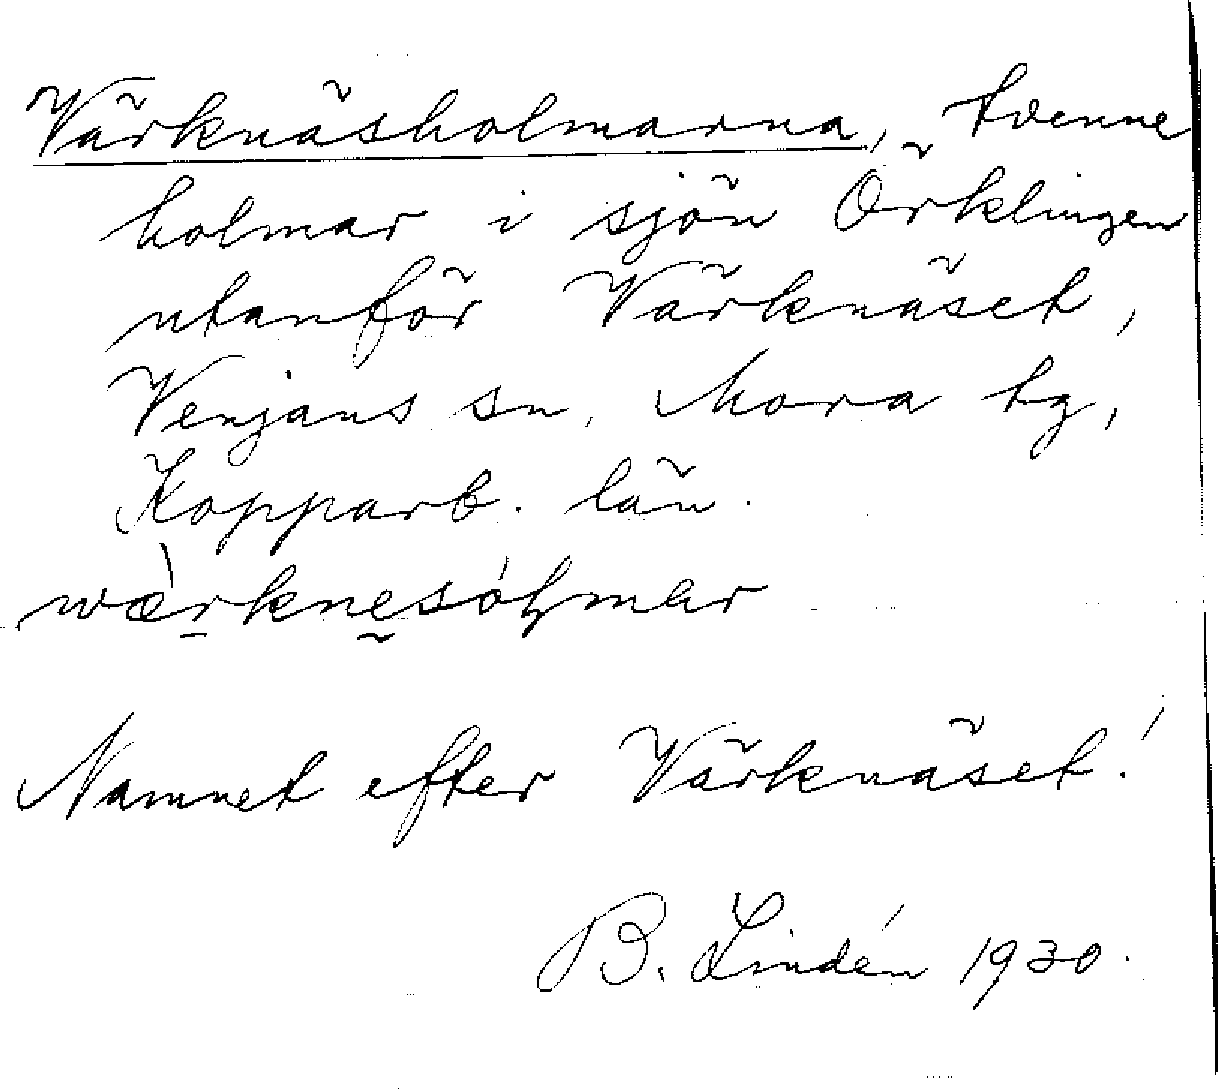 Värknäsholmarna, tvenne
holmar i sjön Örklingen
utanför Värknäset,
Venjans sn, Mora tg,
Kopparb. län.
wærknesólmar
Namnet efter Värknäset!
B. Lindén 1930.